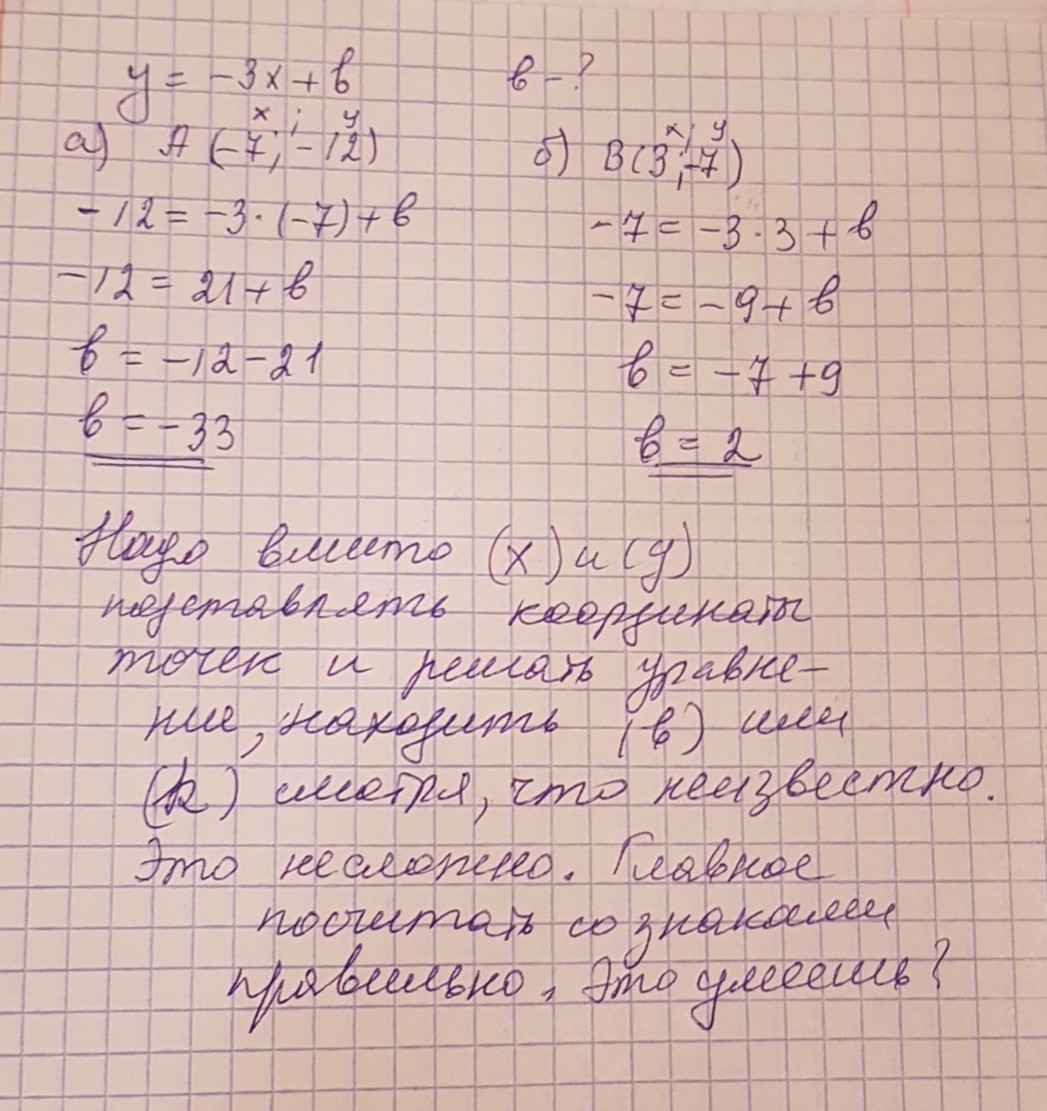 y = -3x + в        в - ?
x ; y        x ; y
а) A (-7; -12)        б) B(3; -7)
-12 = -3 · (-7) + в        -7 = -3 · 3 + в
-12 = 21 + в        -7 = -9 + в
в = -12 - 21        в = -7 + 9
в = -33        в = 2
Надо вместо (x) и (y)
подставлять координаты
точек и решать уравне-
ние, находить (в) или
(k) смотря, что неизвестно.
Это несложно. Главное
посчитать со знаками
правильно, Это умеешь?